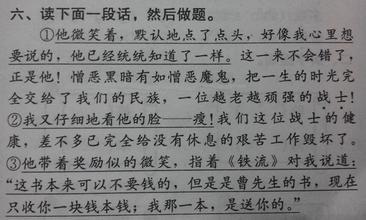 六、读下面一段话，然后做题。
①他微笑着，默认地点了点头，好像我心里想
要说的，他已经统统知道了一样。这一来不会错了，
正是他！憎恶黑暗有如憎恶魔鬼，把一生的时光完
全交给了我们的民族，一位越老越顽强的战士！
②我又仔细地看他的脸——瘦！我们这位战士的健
康，差不多已完全给没有休息的艰苦工作毁坏了。
③他带着奖励似的微笑，指着《铁流》对我说道：
“这书本来可以不要钱的，但是是曹先生的书，现在
只收你一块钱本钱；我那一本，是送你的。”